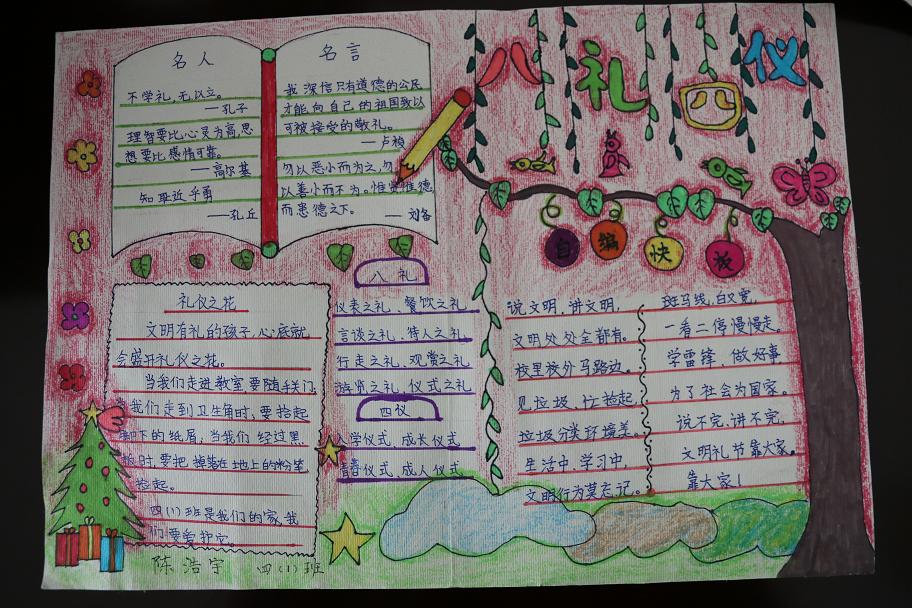 八礼四仪
名人
名言
不学礼,无以立。
——孔子
理智要比心灵为高,思
想要比感情可靠。
——高尔基
知耻近乎勇
——孔丘
我深信只有道德的公民
才能向自己的祖国致以
可被接受的敬礼。
——卢梭
勿以恶小而为之,勿
以善小而不为。惟贤惟德
而患德之下。
——刘备
自编快板
礼仪之花
文明有礼的孩子,心底就
会盛开礼仪之花。
当我们走进教室,要随手关门,
我们走到卫生角时,要捡起
脚下的纸屑,当我们经过黑
板时,要把掉落在地上的粉笔
捡起。
四(1)班是我们的家,我
们要爱护它。
八礼
仪表之礼、餐饮之礼
言谈之礼、待人之礼
行走之礼、观赏之礼
游览之礼、仪式之礼
四仪
入学仪式、成长仪式
青春仪式、成人仪式
说文明,讲文明,
文明处处全都有。
校里校外马路边,
见垃圾,忙捡起,
垃圾分类环境美。
生活中,学习中,
文明行为莫忘记。
斑马线,白又宽,
一看二停慢慢走。
学雷锋、做好事
为了社会为国家。
说不完,讲不完,
文明礼节靠大家。
靠大家!
陈浩宇 四(1)班